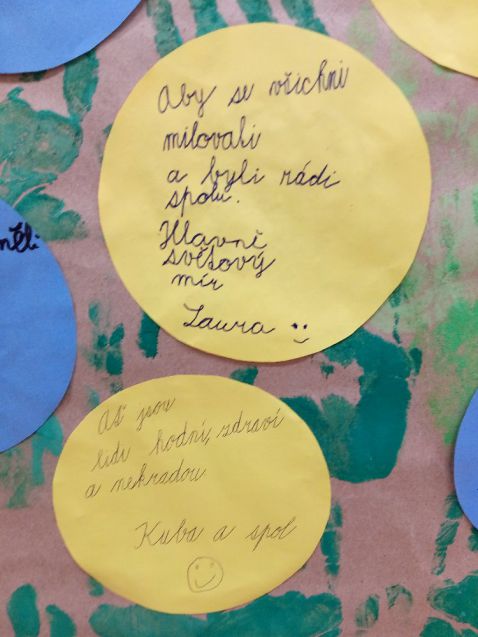 Aby se všichni
milovali
a byli rádi
spolu.
Hlavně
světový
mír
Laura
Ať jsou
lidi hodní, zdraví
a nekradou
Kuba a spol